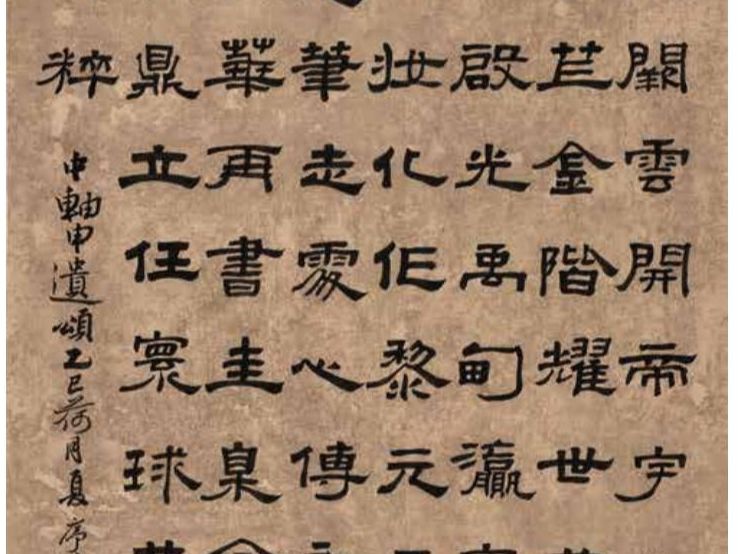 闕雲開帝宇
芒金階耀世
啟光禹甸瀛
妝化作黎元
筆走處心傳
華再書圭臬
鼎立任寰球
粹
中軸申遺頌乙巳荷月夏序